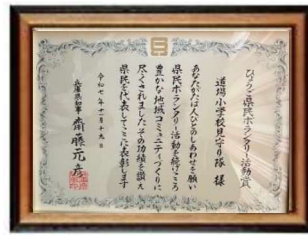 ひょうご県民ボランタリー活動賞
道場小学校見守り隊 様
あなたがたは人びとのしあわせを願い
県民ボランタリー活動を続けこころ
豊かな地域コミュニティづくりに
尽くされました その功績を讃え
県民を代表してここに表彰します
令和七年十一月十九日
兵庫県知事 齋藤元彦